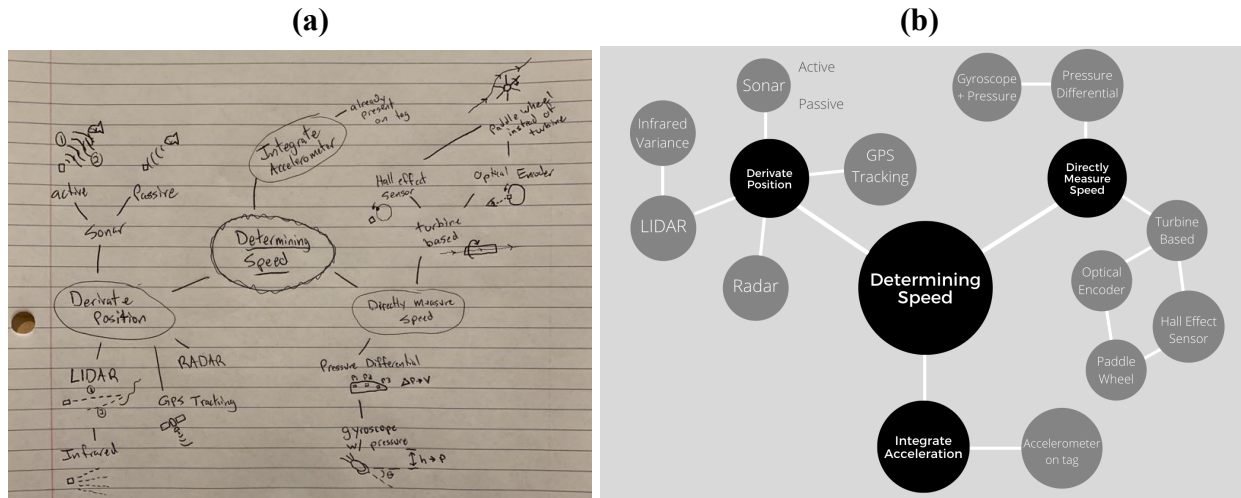 (a)
already
present
on tag
Integrate
Accelerometer
Paddle wheel
instead of
turbine
①
②
active
Passive
Sonar
Hall effect
sensor
Optical Encoder
turbine
based
Determining
Speed
Derivate
Position
Directly measure
Speed
LIDAR
①
②
RADAR
GPS Tracking
Infrared
Pressure Differential
P1 P2 P3
ΔP→V
gyroscope
w/ pressure
h→P
θ
(b)
Sonar
Active
Passive
Infrared
Variance
Derivate
Position
GPS
Tracking
LIDAR
Radar
Gyroscope
+ Pressure
Pressure
Differential
Directly
Measure
Speed
Turbine
Based
Optical
Encoder
Hall Effect
Sensor
Paddle
Wheel
Determining
Speed
Integrate
Acceleration
Accelerometer
on tag